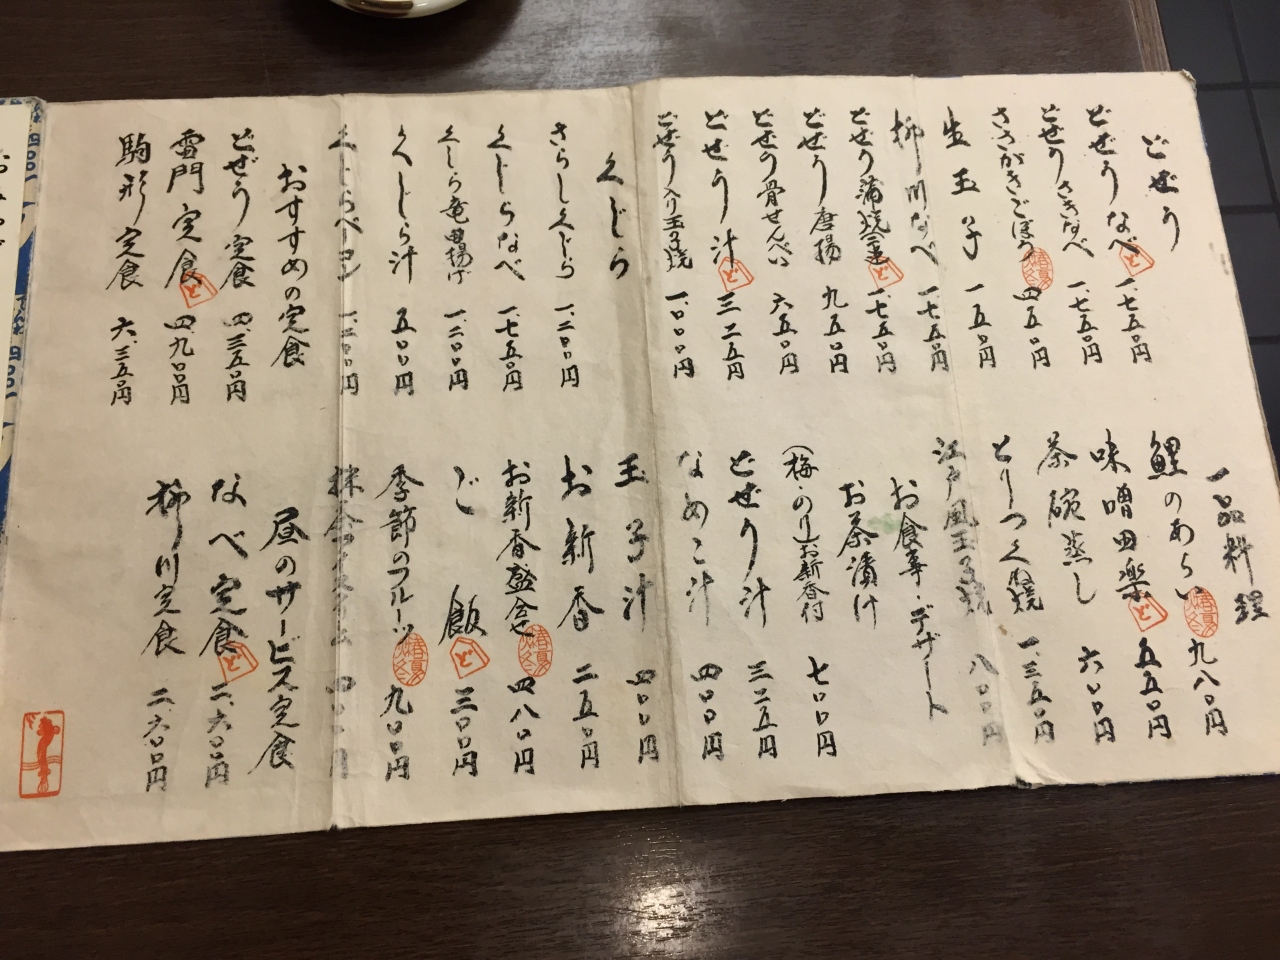 どぜう
どぜうなべ 一、七五〇円
どぜうさきなべ 一、七五〇円
ささがきごぼう 四五〇円
生玉子 一五〇円
柳川なべ 一、七五〇円
どぜう蒲焼 一、七五〇円
どぜう唐揚 九五〇円
どぜうの骨せんべい 六五〇円
どぜう汁 三二五円
どぜう入り玉子焼 一、一〇〇円
くじら
さらしくじら 一、二〇〇円
くじらなべ 一、七五〇円
くじら竜田揚げ 一、二〇〇円
くじら汁 五〇〇円
くじらベーコン 一、二〇〇円
おすすめの定食
どぜう定食 四、三五〇円
雷門定食 四、九〇〇円
駒形定食 六、三五〇円
一品料理
鯉のあらい 九八〇円
味噌田楽 五五〇円
茶碗蒸し 六〇〇円
とりつくね焼 一、三五〇円
江戸風玉子焼 八〇〇円
お食事・デザート
お茶漬け
(梅・のり)お新香付 七〇〇円
どぜう汁 三二五円
なめこ汁 四〇〇円
玉子汁 四〇〇円
お新香 二五〇円
お新香盛合せ 四八〇円
ご飯 三〇〇円
季節のフルーツ 九〇〇円
抹茶アイスクリーム 四〇〇円
昼のサービス定食
なべ定食 二、六〇〇円
柳川定食 二、六〇〇円